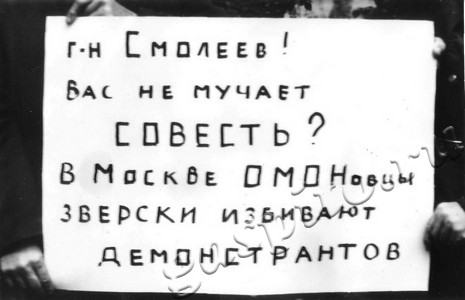 г-н Смолеев!
Вас не мучает
СОВЕСТЬ?
В Москве ОМОНовцы
ЗВЕРСКИ ИЗБИВАЮТ
ДЕМОНСТРАНТОВ